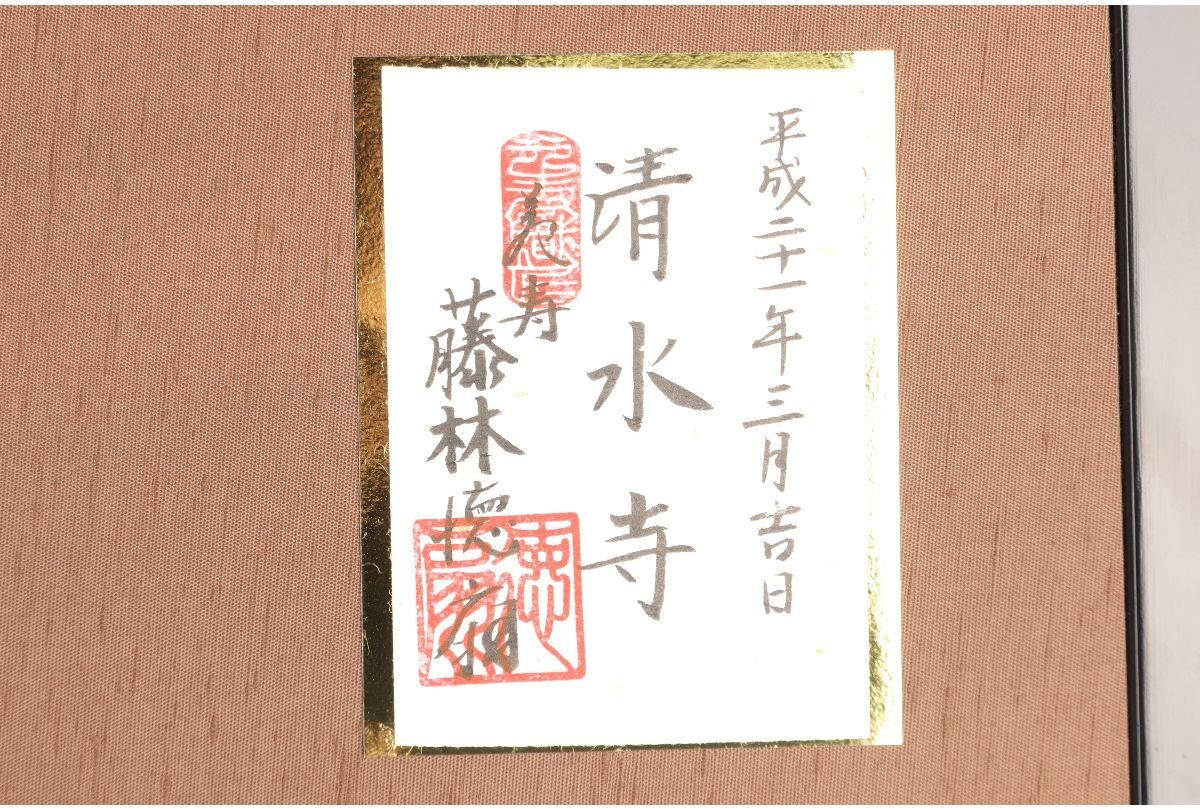 平成二十一年三月吉日
清水寺
寿
藤林徳扇